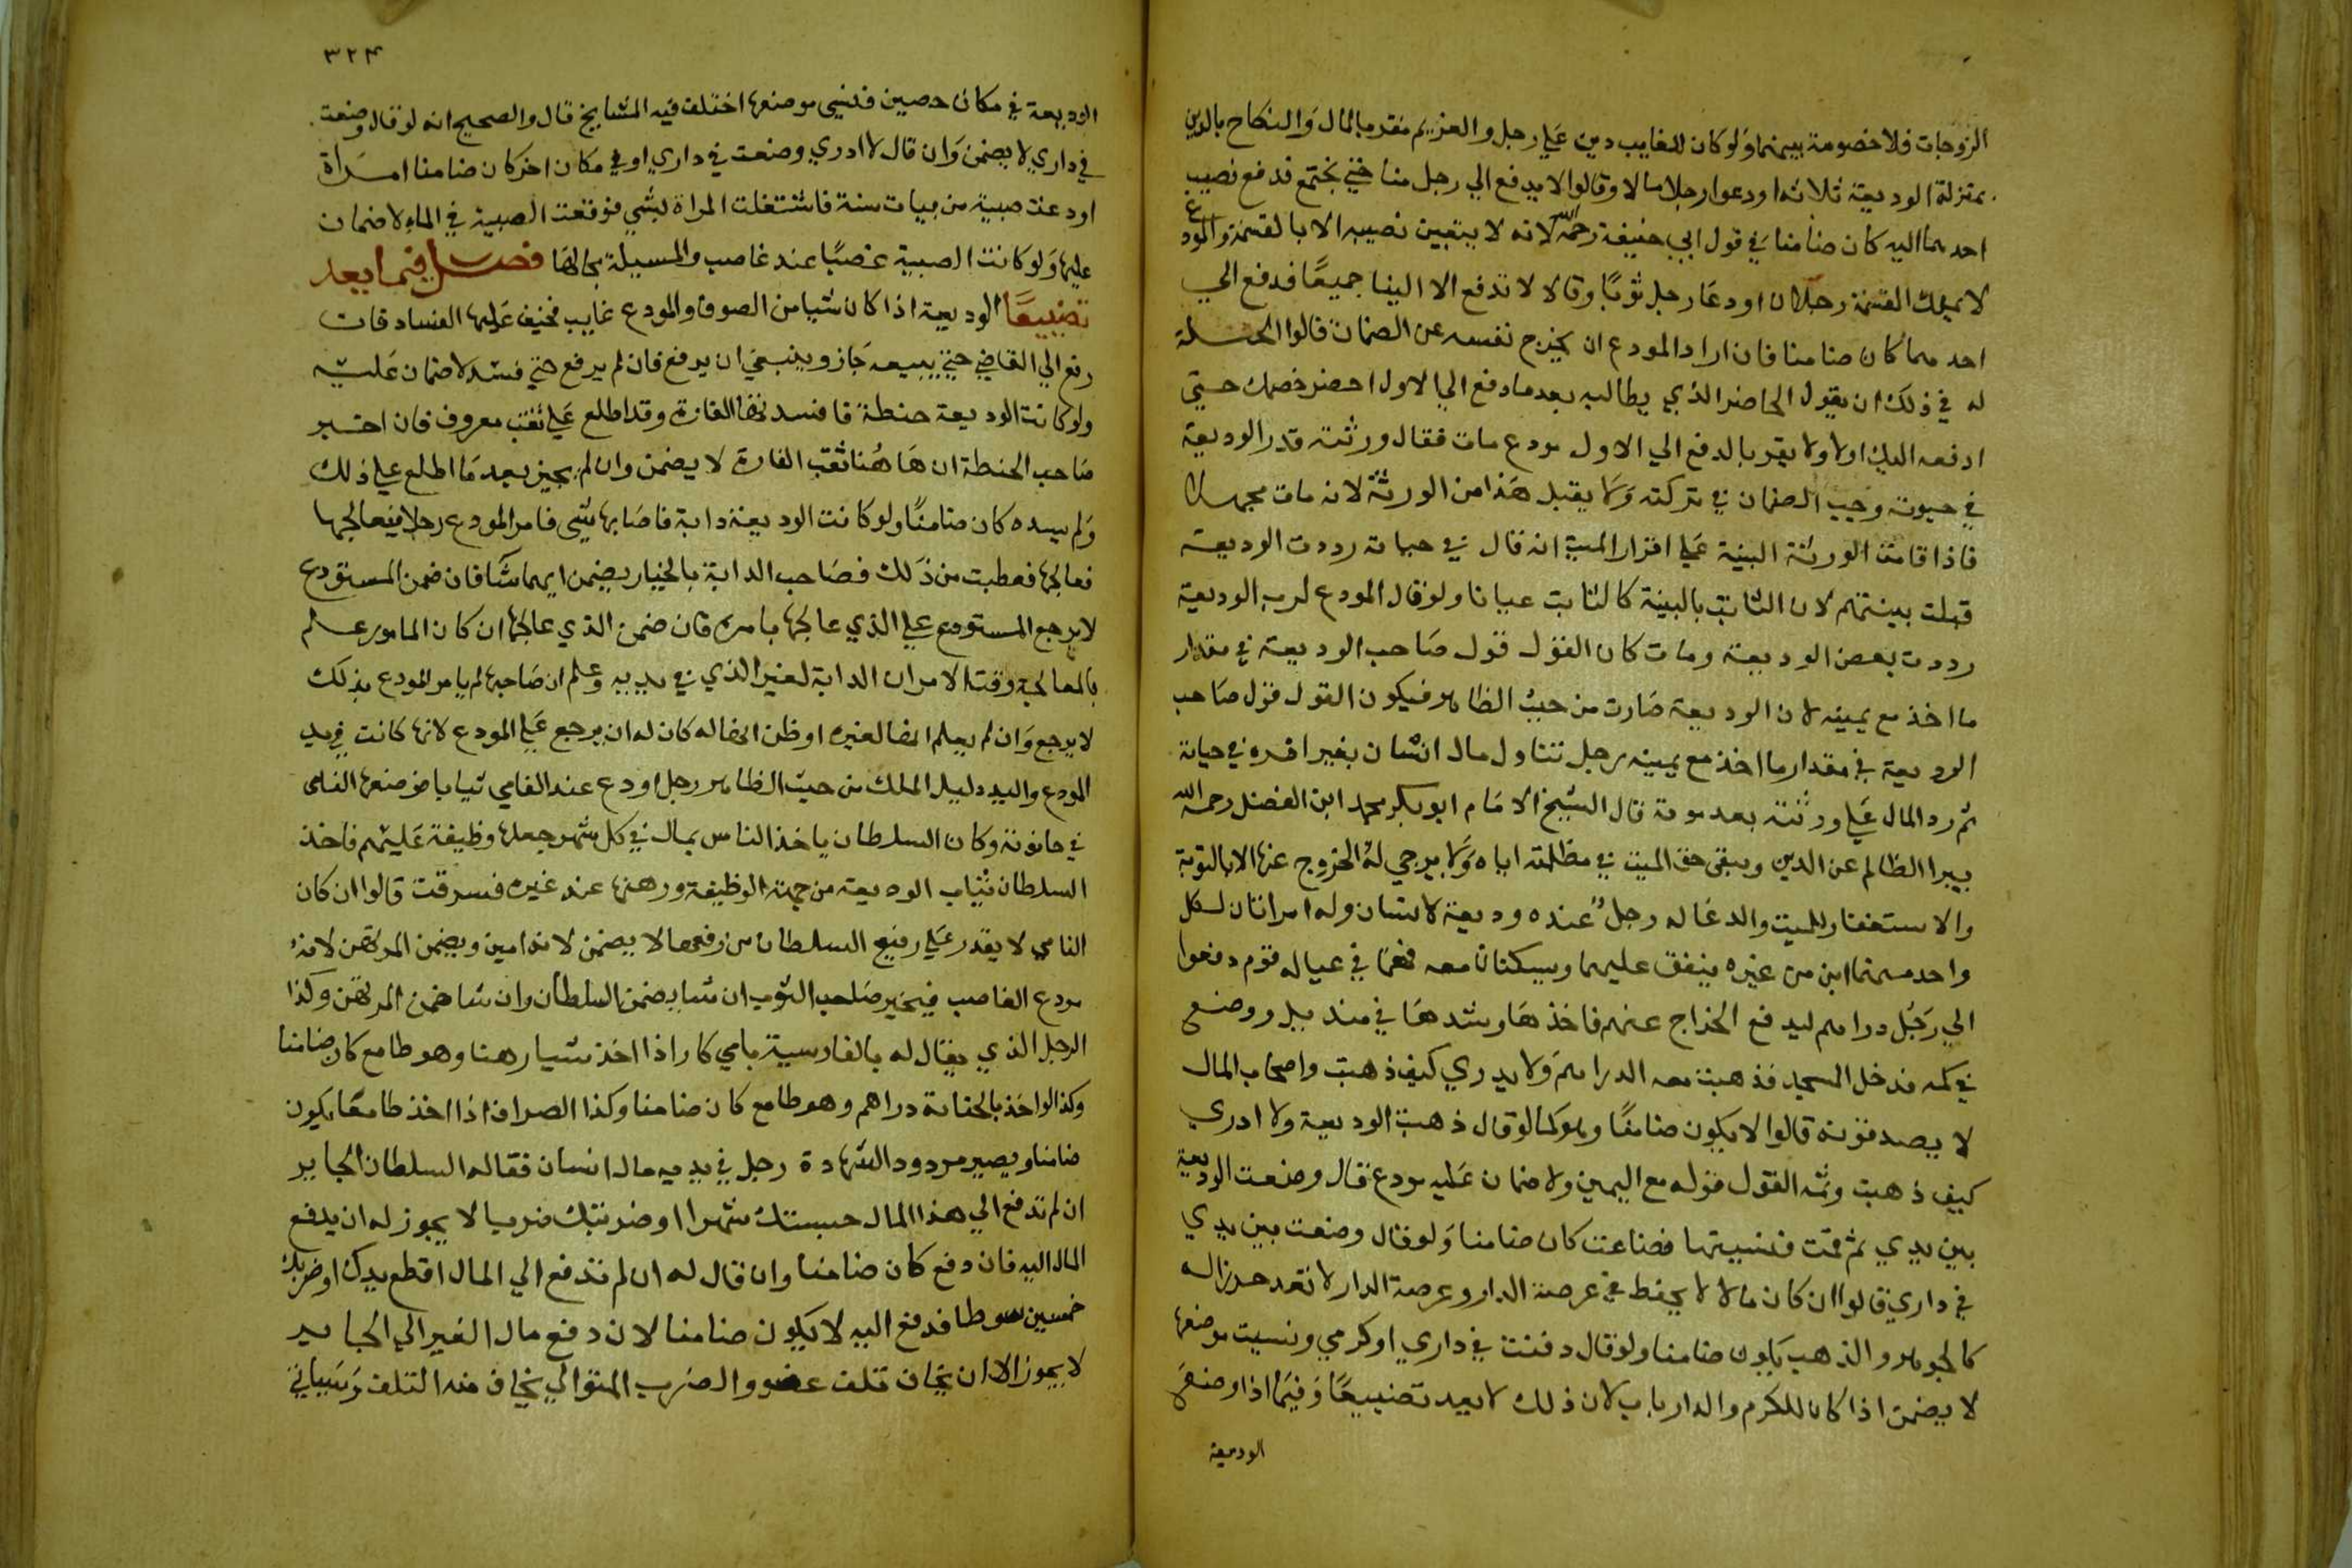 الزوجات فلا خصومة بينهما ولو كان للغايب دين علي رجل والغريم مقر بالمال والنكاح بالدين
بمنزلة الوديعة ثلاثة اودعوا رجلا مالا وقالوا لا يدفع الي رجل منا حتي نجتمع فدفع نصيب
احدهما اليه كان ضامنا في قول ابي حنيفة رحمه الله لانه لا يتبين نصيبه الا بالقسمة والمودع
لا يملك القسمة رجلان اودعا رجل ثوبا وقالا لا تدفع الا الينا جميعا فدفع الي
احدهما كان ضامنا فان اراد المودع ان يخرج نفسه عن الضمان قالوا الحيلة
له في ذلك ان يقول الحاضر الذي يطالبه بعد ما دفع الي الاول احضر خصمك حتي
ادفعه اليك اولا ولا يقر بالدفع الي الاول مودع مات فقال ورثته قد رد الوديعة
في حيوته وجب الضمان في تركته ولا يقبل هذا من الورثة لانه مات مجهلا
فاذا قامت الورثة البينة علي اقرار الميت انه قال في حياته رددت الوديعة
قبلت بينتهم لان الثابت بالبينة كالثابت عيانا ولو قال المودع لرب الوديعة
رددت بعض الوديعة ومات كان القول قول صاحب الوديعة في مقدار
ما اخذ مع يمينه لان الوديعة صارت من حيث الظاهر فيكون القول قول صاحب
الوديعة في مقدار ما اخذ مع يمينه رجل تناول مال انسان بغير امره في حياته
ثم رد المال علي ورثته بعد موته قال الشيخ الامام ابو بكر محمد ابن الفضل رحمه الله
يبرا الظالم عن الدين ويبقى حق الميت في مظلمته اياه ولا يرجي له الخروج عنها الا بالتوبة
والاستغفار للميت والدعا له رجل عنده وديعة لانسان وله امراتان لكل
واحد منهما ابن من غيره ينفق عليهما ويسكنان معه فهما في عياله قوم دفعوا
الي رجل دراهم ليدفع الخراج عنهم فاخذها وشدها في منديل ووضع
في كمه فدخل المسجد فذهبت معه الدراهم ولا يدري كيف ذهبت واصحاب المال
لا يصدقونه قالوا لا يكون ضامنا وهو كما لو قال ذهبت الوديعة ولا ادري
كيف ذهبت وثمه القول قوله مع اليمين ولا ضمان عليه مودع قال وضعت الوديعة
بين يدي ثم قمت فنسيتها فضاعت كان ضامنا ولو قال وضعت بين يدي
في داري قالوا ان كان مالا لا يحفظ في عرصة الدار وعرصة الدار لا تعد حرزا له
كالجوهر والذهب يكون ضامنا ولو قال دفنت في داري او كرمي ونسيت موضعها
لا يضمن اذا كان للكرم والدار باب لان ذلك لا يعد تضييعا وفيما اذا وضع
الوديعة
٣٢٤
الوديعة في مكان حصين فنسي موضعها اختلف فيه المشايخ قال والصحيح انه لو قال وضعت
في داري لا يضمن وان قال لا ادري وضعت في داري او في مكان اخر كان ضامنا امراة
اودعت صبية من بنات سنة فاشتغلت المراة بشي فوقعت الصبية في الماء لا ضمان
عليها ولو كانت الصبية غصبا عند غاصب والمسيلة بحالها فصل فيما يعد
تضييعا الوديعة اذا كان شيا من الصوف والمودع غايب فخيف عليها الفساد قات
رفع الي القاضي حتي يبيعه جاز وينبغي ان يرفع فان لم يرفع حتي فسد لا ضمان عليه
ولو كانت الوديعة حنطة فافسدتها الفارة وقد اطلع علي ثقب معروف فان اخبر
صاحب الحنطة ان هاهنا ثقب الفارة لا يضمن وان لم يخبر بعد ما اطلع علي ذلك
ولم يسده كان ضامنا ولو كانت الوديعة دابة فاصابها شي فامر المودع رجلا فيعالجها
فعالجها فعطبت من ذلك فصاحب الدابة بالخيار يضمن ايهما شا فان ضمن المستودع
لا يرجع المستودع علي الذي عالجها بامره فان ضمن الذي عالجها ان كان المامور علم
بالمعالجة وقت الامر ان الدابة لغير الذي في يديه وعلم ان صاحبها لم يامر المودع بذلك
لا يرجع وان لم يعلم انها لغيره او ظن انها له كان له ان يرجع علي المودع لانها كانت في يد
المودع واليد دليل الملك من حيث الظاهر رجل اودع عند الفامي ثيابا فوضعها الفامي
في حانوته وكان السلطان ياخذ الناس بمال في كل شهر جعلها وظيفة عليهم فاخذ
السلطان ثياب الوديعة من جهة الوظيفة ورهنها عند غيره فسرقت قالوا ان كان
الفامي لا يقدر علي رفيع السلطان من رفعها لا يضمن لانه امين ويضمن المرتهن لانه
مودع الغاصب فيخير صاحب الثوب ان شا يضمن السلطان وان شا ضمن المرتهن وكذا
الرجل الذي يقال له بالفارسية بامي كار اذا اخذ شيا رهنا وهو طامع كان ضامنا
وكذا لو اخذ بالجناية دراهم وهو طامع كان ضامنا وكذا الصراف اذا اخذ طامعا يكون
ضامنا ويصير مردود الشهادة رجل في يديه مال انسان فقال له السلطان الجاير
ان لم تدفع الي هذا المال حبستك شهرا او ضربتك ضربا لا يجوز له ان يدفع
المال اليه فان دفع كان ضامنا وان قال له ان لم تدفع الي المال اقطع يدك او ضربك
خمسين سوطا فدفع اليه لا يكون ضامنا لان دفع مال الغير الي الجاير
لا يجوز الا ان يخاف تلف عضو والضرب المتوالي يخاف منه التلف وسياتي